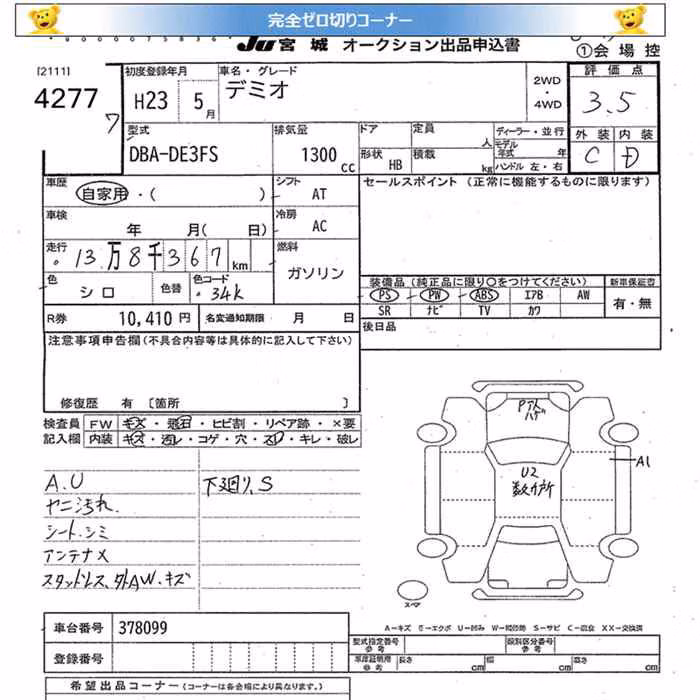 完全ゼロ切りコーナー
JU 宮城 オークション出品申込書
①会場控
[2111]
4277
7
初度登録年月 車名・グレード
H23 5月 デミオ
2WD・4WD
評価点
3.5
型式 排気量 ドア 定員 人 ディーラー・並行
外装 内装
DBA-DE3FS 1300cc 形状 HB 積載 kg モデル年式 年
ハンドル 左・右
C D
車歴 シフト セールスポイント (正常に機能するものに限ります)
自家用・( ) AT
車検 冷房
年 月( 日) AC
走行 燃料
13万8千367km ガソリン
色 色替 色コード
シロ 34K
装備品 (純正品に限り〇をつけてください) 新車保証書
PS PW ABS エアB AW 有・無
SR ナビ TV カワ
R券 10,410円 名変通知期限 月 日
後日品
注意事項申告欄(不具合内容等は具体的に記入して下さい)
修復歴 有 [箇所 ]
検査員記入欄
FW キズ・飛石・ヒビ割・リペア跡・×要
内装 キズ・汚レ・コゲ・穴・スレ・キレ・破レ
A.U 下廻り、S
ヤニ汚れ
シート、シミ
アンテナX
スタッドレス、外AW.キズ
Pアト
ハゲ
U2
数ヶ所
A1
スペア
A-キズ E-エクボ U-凹み W-補修跡 S-サビ C-腐食 XX-交換済
車台番号 378099
登録番号
型式指定番号 参考 類別区分番号 参考
車庫証明用 参考 長さ cm 幅 cm 高さ cm
希望出品コーナー (コーナーは各会場により異なります。)